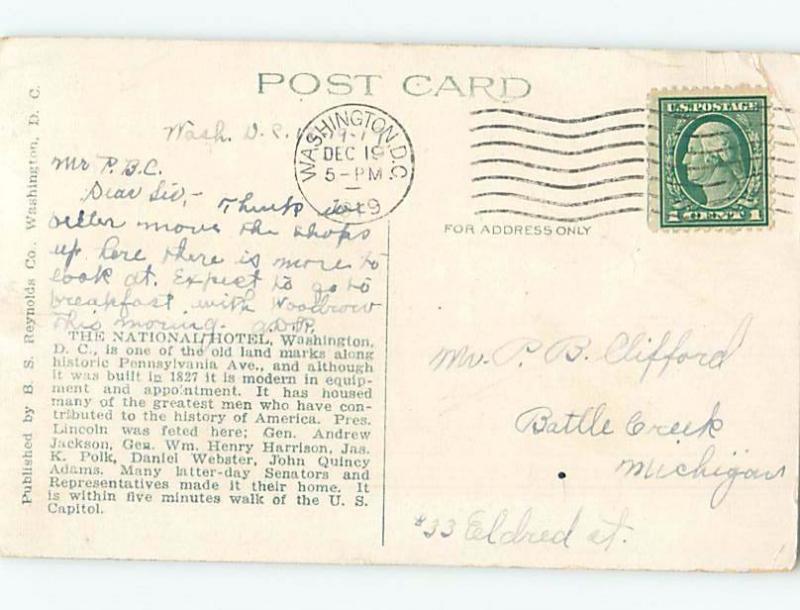 POST CARD
Wash. D.C.
WASHINGTON, D.C.
DEC 19
5-PM
1919
U.S. POSTAGE
1 CENT 1
FOR ADDRESS ONLY
Mr P.B.C.
Dear Sir,- Think we
better move the shops
up here there is more to
look at. Expect to go to
breakfast with Woodrow
this morning.
THE NATIONAL HOTEL, Washington,
D. C., is one of the old land marks along
historic Pennsylvania Ave., and although
it was built in 1827 it is modern in equip-
ment and appointment. It has housed
many of the greatest men who have con-
tributed to the history of America. Pres.
Lincoln was feted here; Gen. Andrew
Jackson, Gen. Wm. Henry Harrison, Jas.
K. Polk, Daniel Webster, John Quincy
Adams. Many latter-day Senators and
Representatives made it their home. It
is within five minutes walk of the U. S.
Capitol.
Published by B. S. Reynolds Co., Washington, D. C.
Mr. P. B. Clifford
Battle Creek
Michigan
#33 Eldred st.